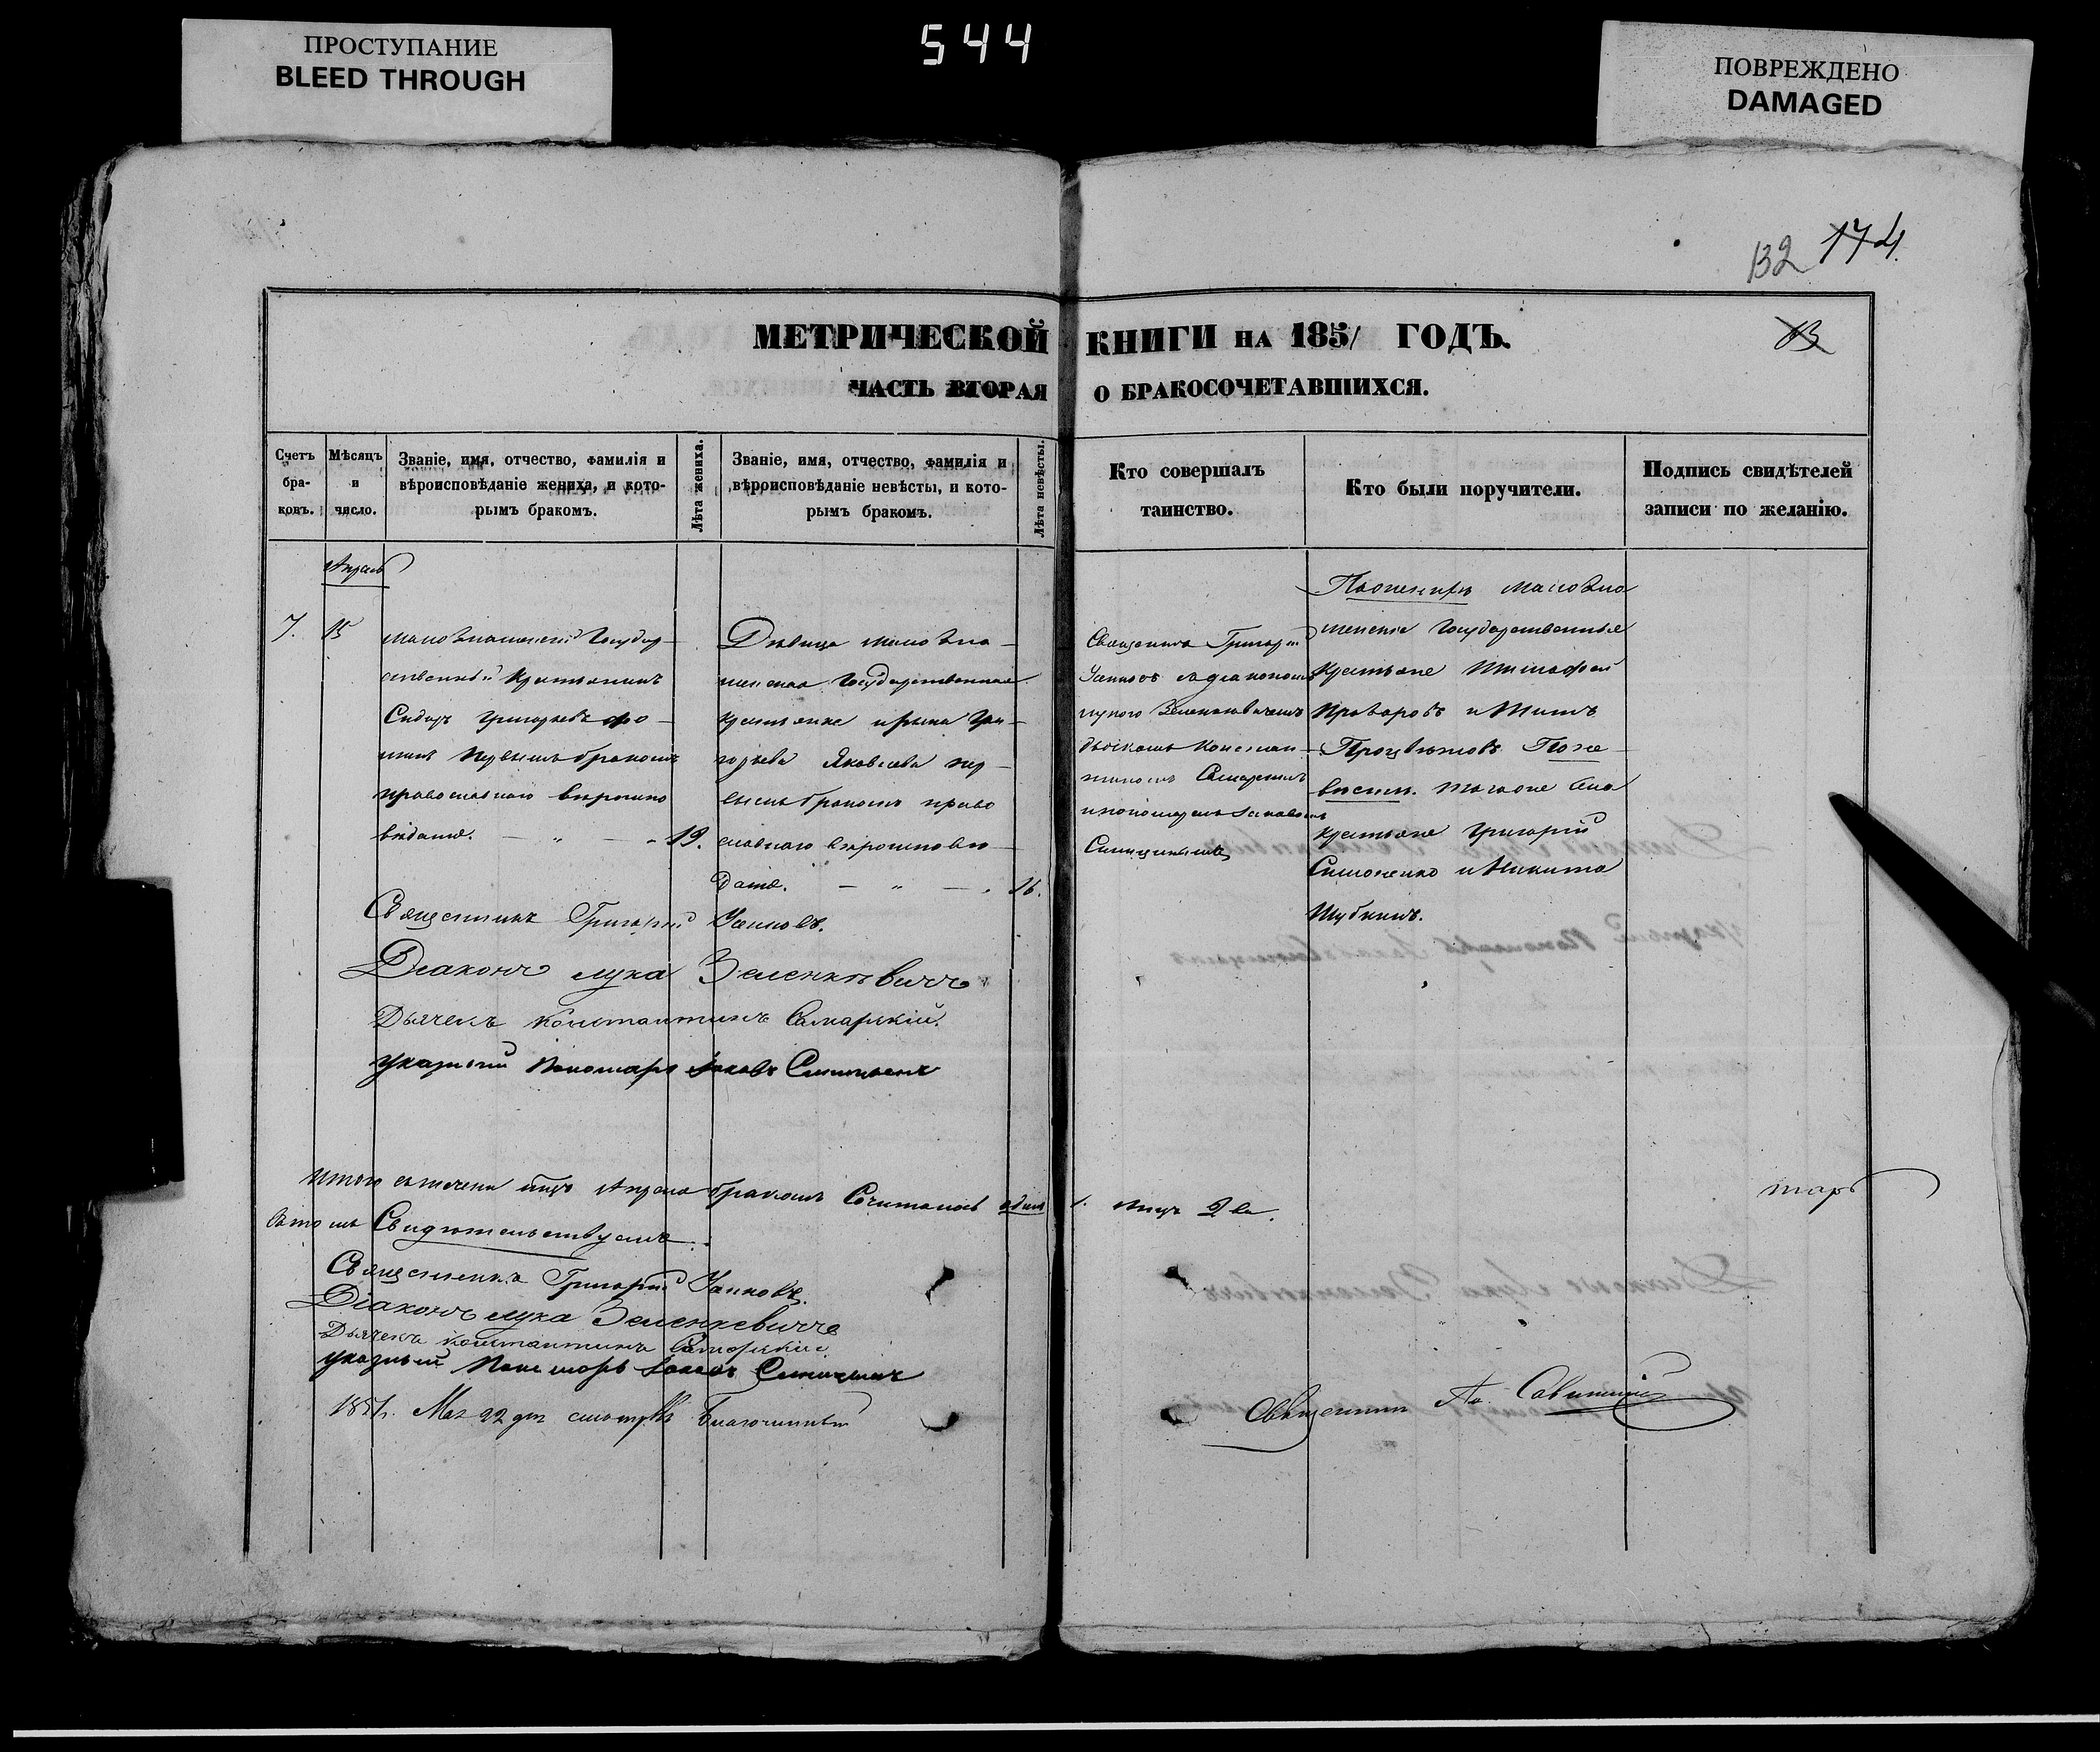 ПРОСТУПАНИЕ
BLEED THROUGH
544
ПОВРЕЖДЕНО
DAMAGED
132 174.
МЕТРИЧЕСКОЙ КНИГИ НА 1851 ГОДЪ.
13
ЧАСТЬ ВТОРАЯ О БРАКОСОЧЕТАВШИХСЯ.
Счетъ бра-ковъ.
Мѣсяцъ и число.
Званіе, имя, отчество, фамилія и
вѣроисповѣданіе жениха, и кото-
рымъ бракомъ.
Лѣта жениха.
Званіе, имя, отчество, фамилія и
вѣроисповѣданіе невѣсты, и кото-
рымъ бракомъ.
Лѣта невѣсты.
Кто совершалъ
таинство.
Кто были поручители.
Подпись свидѣтелей
записи по желанію.
Апрель
7.
15
Государ-
ственный Крестьянинъ
Сидоръ Григорьевъ Фо-
минъ первымъ бракомъ
православнаго вероиспо
веданія. 19.
Девица
Государственная
крестьянка Ирина Гри-
горьева Яковлева пер-
вымъ бракомъ право
славнаго вероисповѣ-
данія. 16.
Священникъ Григорій
съ діакономъ
лукою Зеленкевичемъ
дьячкомъ Констан-
тиномъ Самарскимъ
и пономаремъ Іаковомъ
Синицинымъ
По женихѣ
Государственные
крестьяне
и Титъ
По не
вестѣ.
крестьяне Григорій
Симоненко и Никита
Шубкинъ.
Священникъ Григорій
Діаконъ лука Зеленкевичъ
Дьячекъ Константинъ Самарскій.
указный Пономарь Іаковъ Синицынъ
Итого въ теченіи Апреля бракомъ Сочеталось одинъ 1. лицъ 2ва.
маръ
въ томъ Свидетельствуемъ:
Священникъ Григорій
Діаконъ лука Зеленкевичъ
Дьячекъ Константинъ Самарскій
указный Пономарь Іаковъ Синицынъ
1851 г. Мая 22 дня Благочинный
Священникъ Савицкій